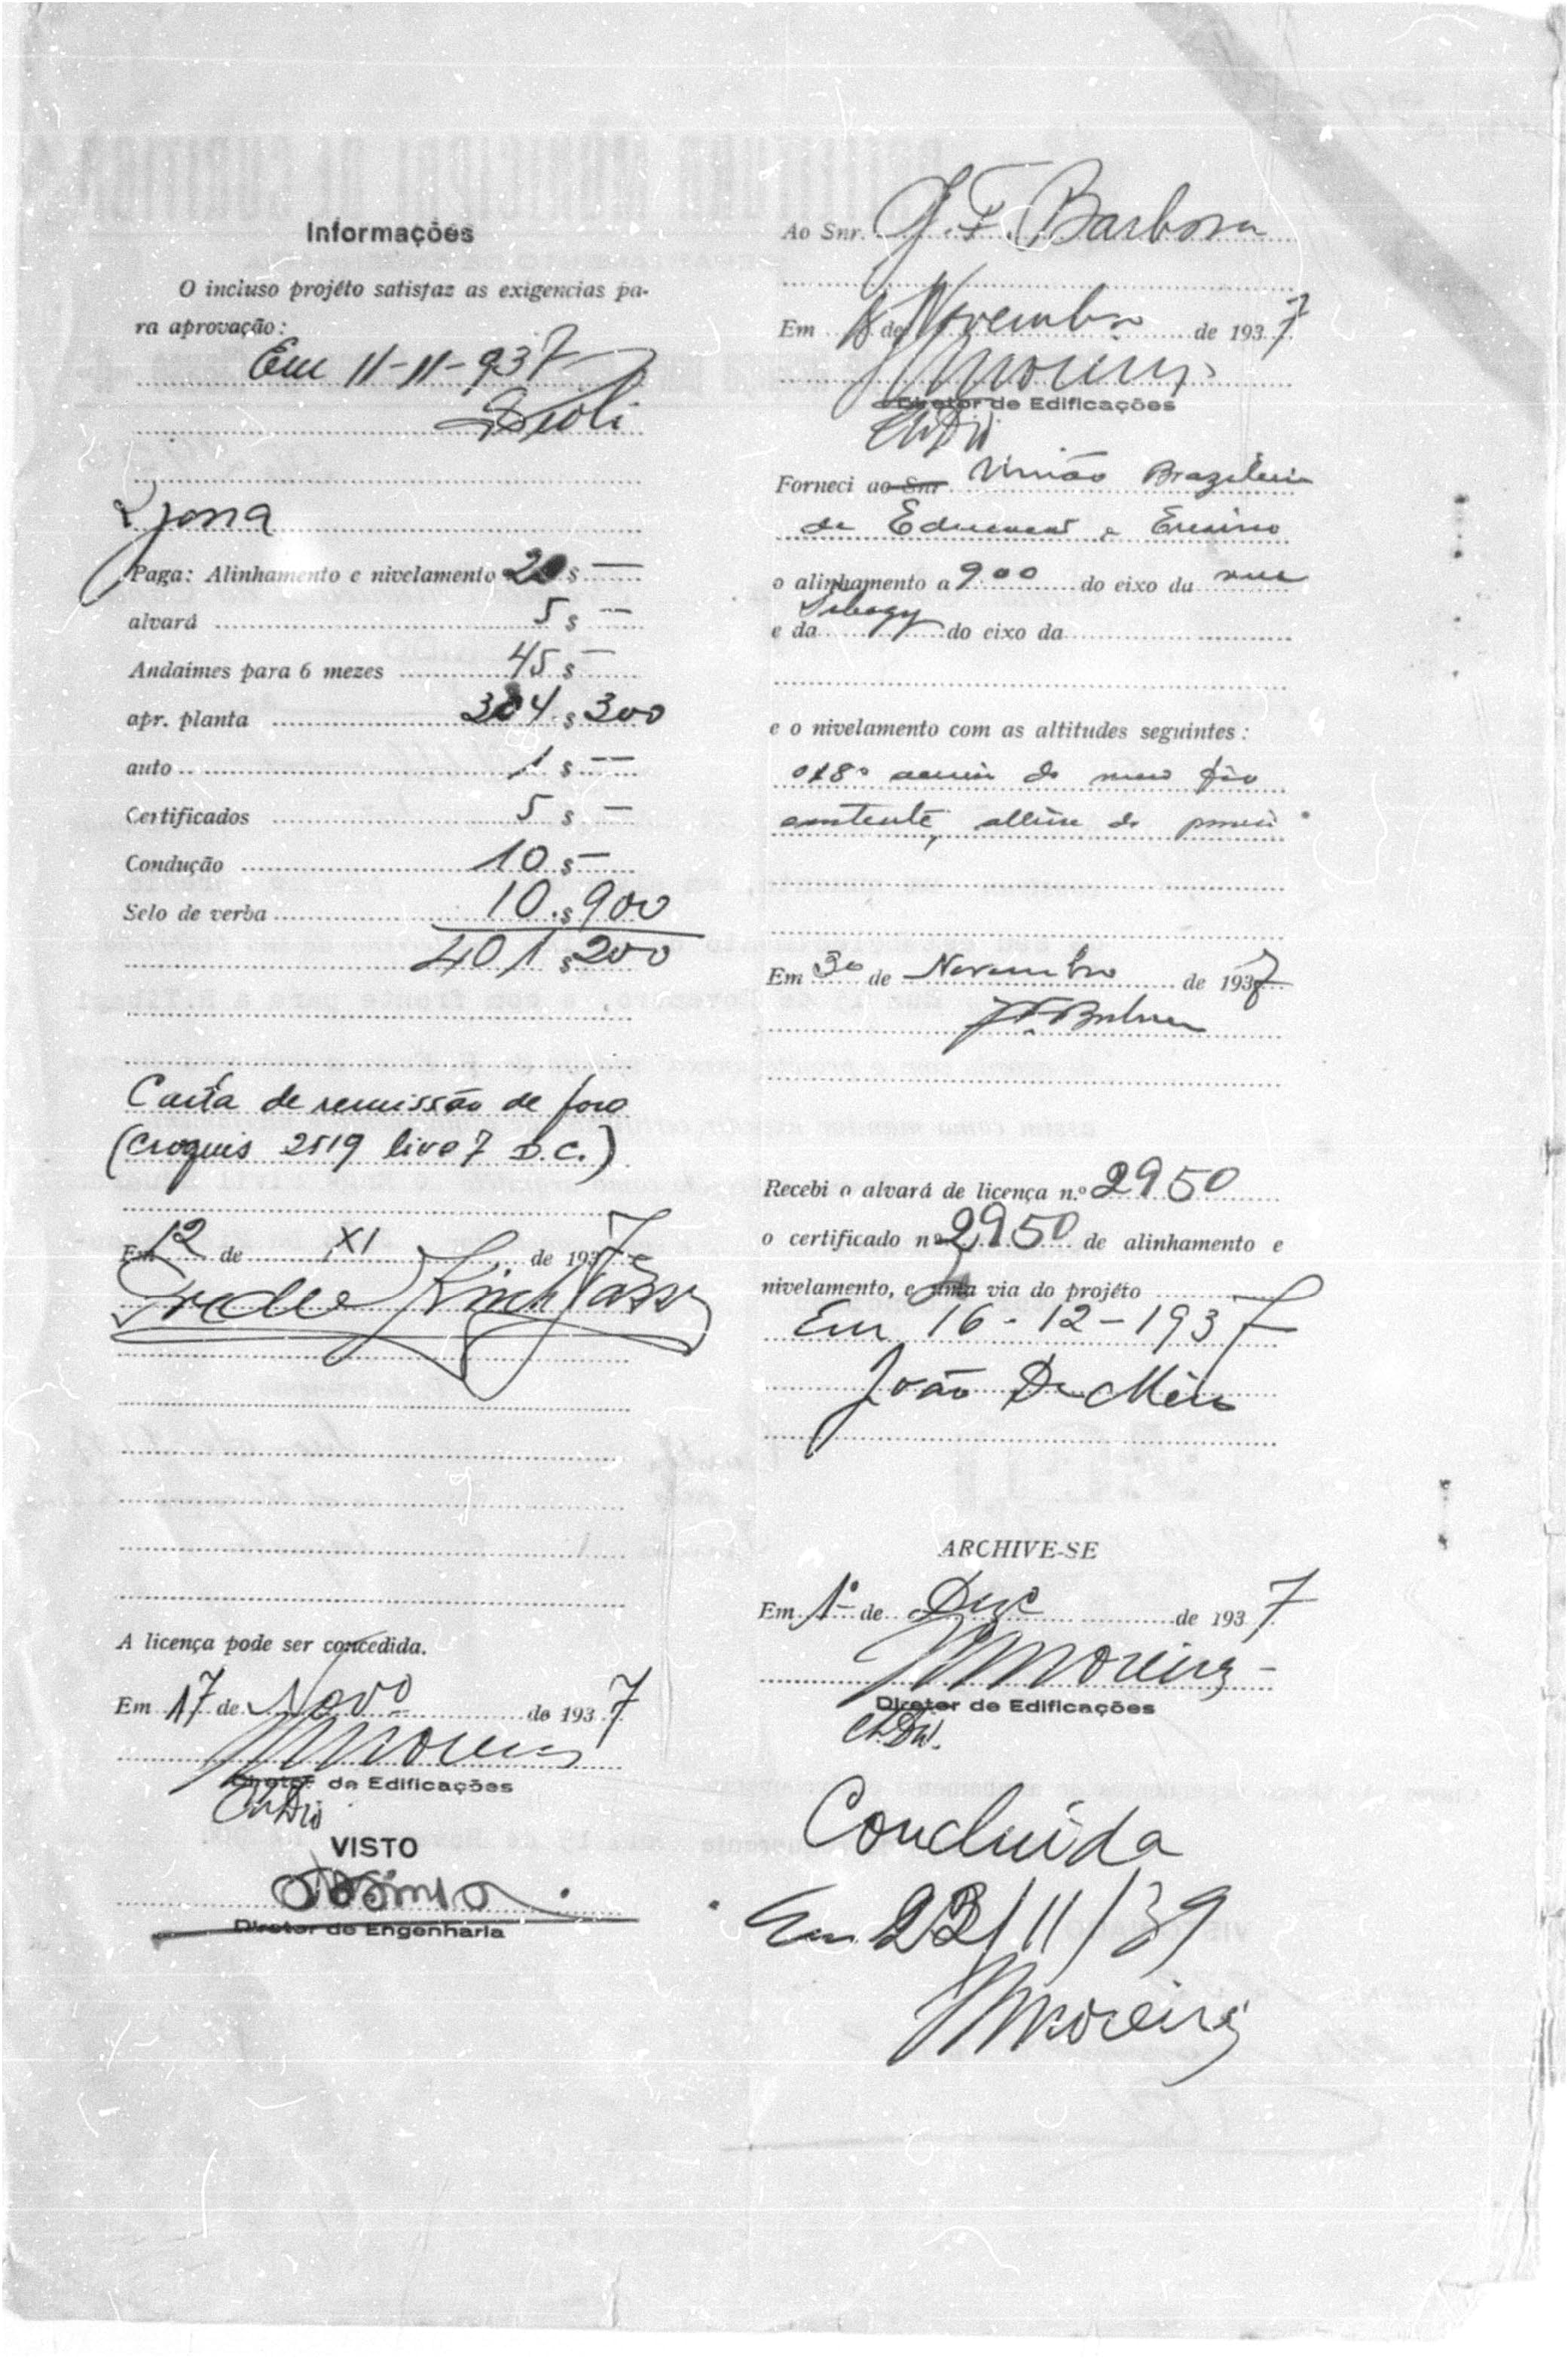 Informações
O incluso projéto satisfaz as exigencias pa-
ra aprovação:
Em 11-11-937
Paga: Alinhamento e nivelamento 20 $ —
alvará 5 $ —
Andaimes para 6 mezes 45 $ —
apr. planta 304 $ 300
auto 1 $ —
Certificados 5 $ —
Condução 10 $ —
Selo de verba 10 $ 900
401 $ 200
Carta de remissão de foro
(croquis 2519 livo 7 D.C.)
Em 12 de XI de 1937
A licença pode ser concedida.
Em 17 de Novo de 1937
Moreira
Diretor de Edificações
VISTO
Diretor de Engenharia
Ao Snr. J. F. Barbosa
Em 18 de Novembro de 1937
Moreira
Diretor de Edificações
Forneci ao Snr União Brazileira
de Educação e Ensino
o alinhamento a 900 do eixo da rua
e da do eixo da
e o nivelamento com as altitudes seguintes:
018º acima do meio fio
Em 30 de Novembro de 1937
Recebi o alvará de licença n.º 2950
o certificado nº 2950 de alinhamento e
nivelamento, e uma via do projéto
Em 16-12-1937
João De Mio
ARCHIVE-SE
Em 1º de Dez de 1937
Moreira
Diretor de Edificações
Concluida
Em 23/11/39
Moreira